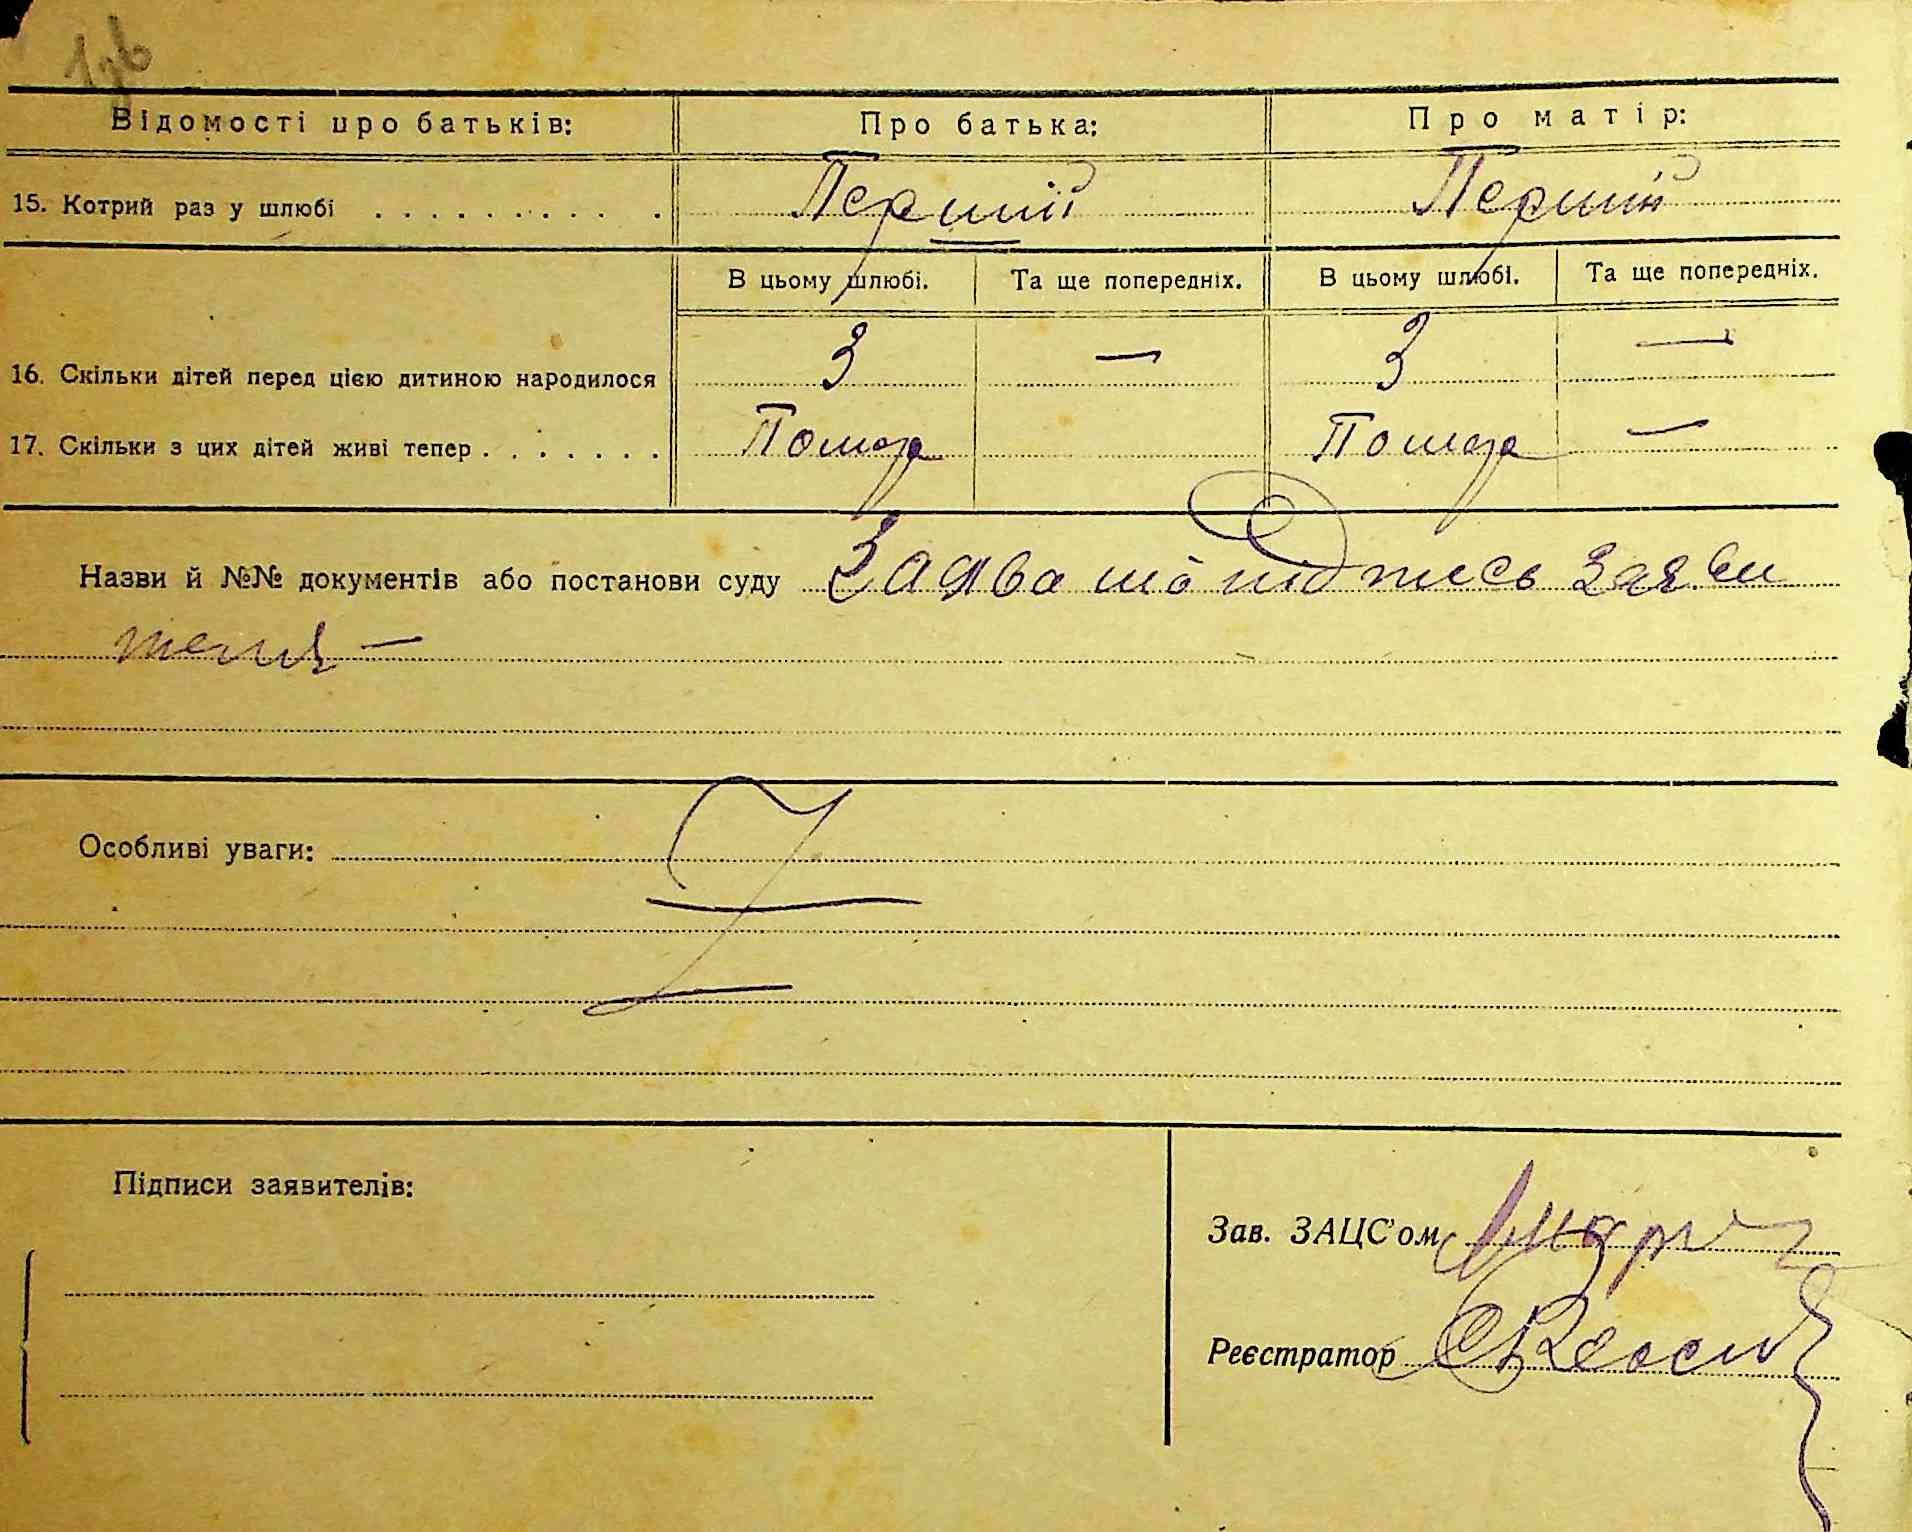 Відомості про батьків: Про батька: Про матір:
15. Котрий раз у шлюбі . . . . . . . . . . Перший Перший
В цьому шлюбі. Та ще попередніх. В цьому шлюбі. Та ще попередніх.
16. Скільки дітей перед цією дитиною народилося 3 — 3 —
17. Скільки з цих дітей живі тепер . . . . . . . Помер Помер —
Назви й №№ документів або постанови суду Заява підпись заяви
теля —
Особливі уваги:
Підписи заявителів:
Зав. ЗАЦС'ом
Реєстратор